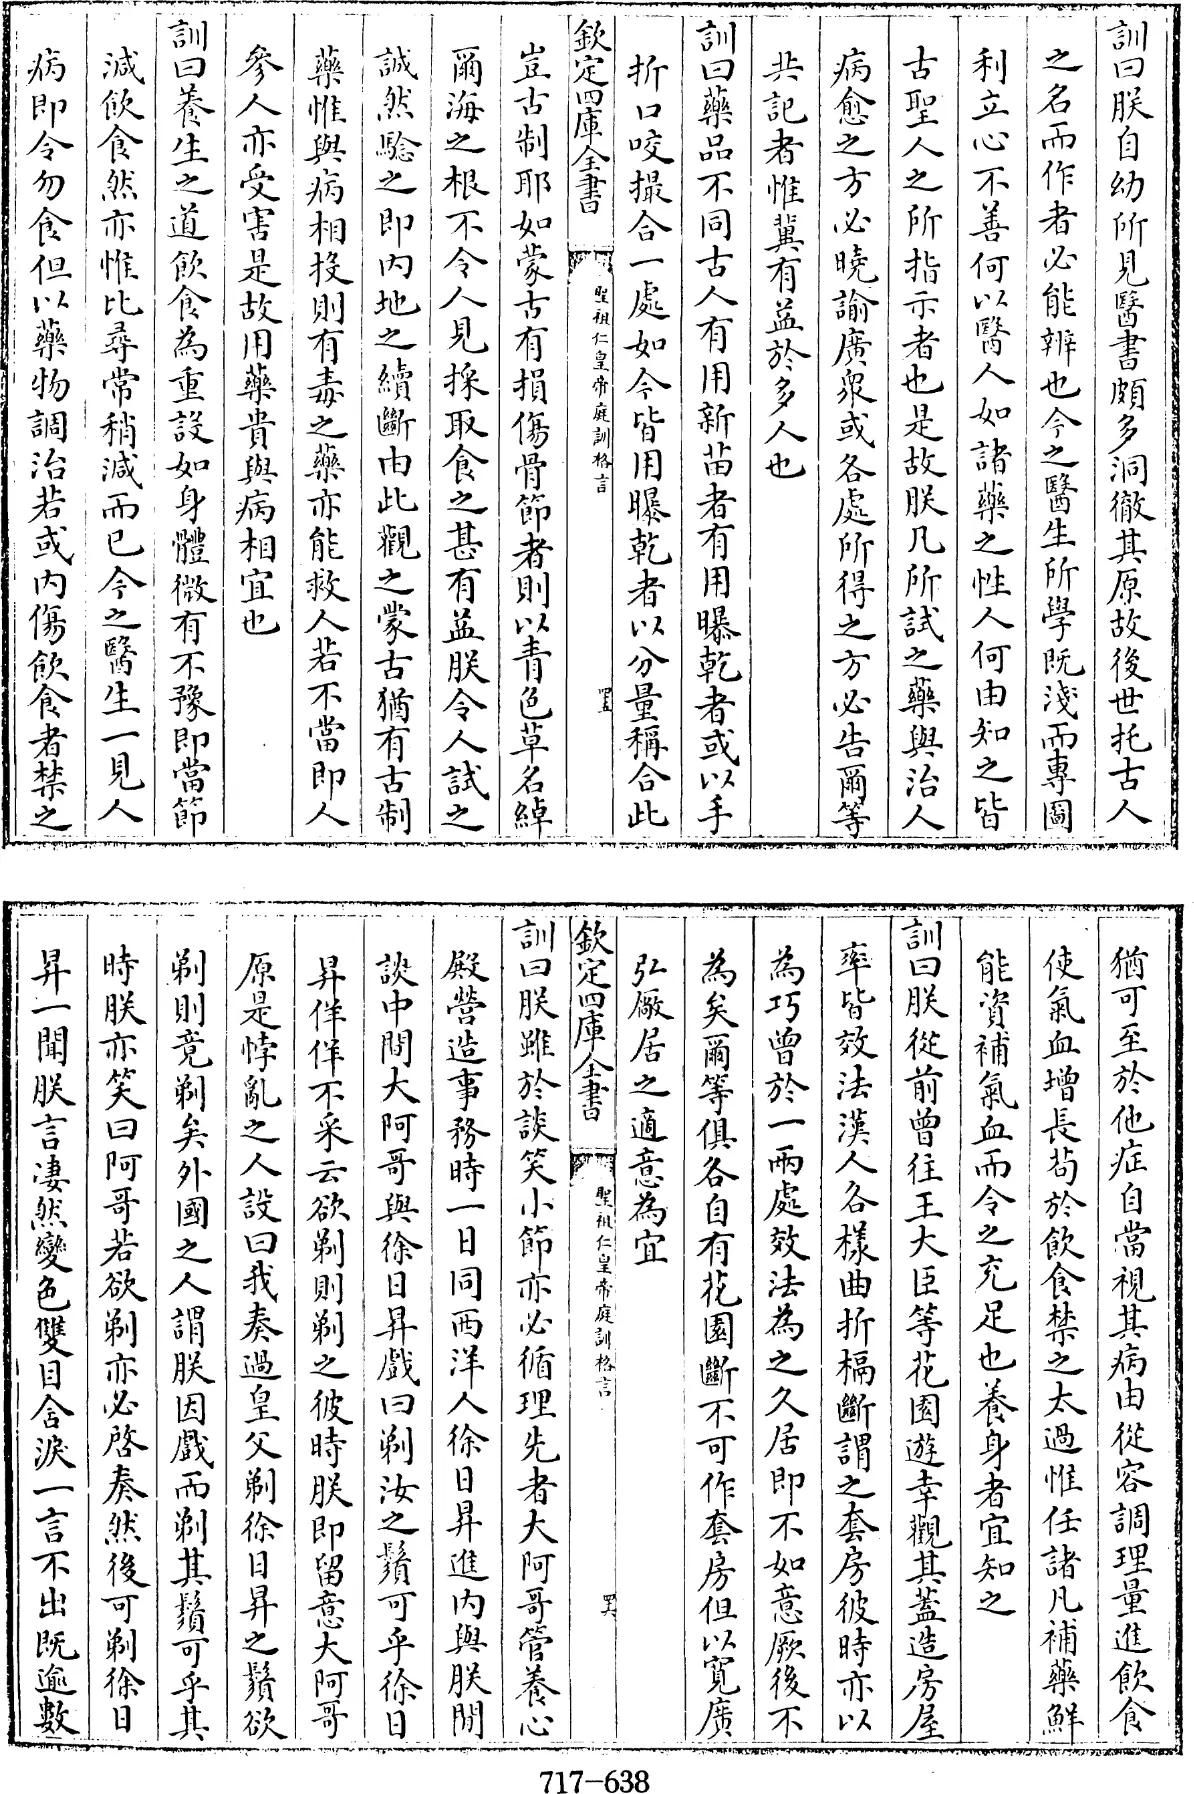 訓曰朕自幼所見醫書頗多洞徹其原故後世托古人
之名而作者必能辨也今之醫生所學既淺而專圖
利立心不善何以醫人如諸藥之性人何由知之皆
古聖人之所指示者也是故朕凡所試之藥與治人
病愈之方必曉諭廣衆或各處所得之方必告爾等
共記者惟冀有益於多人也
訓曰藥品不同古人有用新苗者有用曝乾者或以手
折口咬撮合一處如今皆用曝乾者以分量稱合此
欽定四庫全書
聖祖仁皇帝庭訓格言
豈古制耶如蒙古有損傷骨節者則以青色草名綽
爾海之根不令人見採取食之甚有益朕令人試之
誠然驗之即内地之續斷由此觀之蒙古猶有古制
藥惟與病相投則有毒之藥亦能救人若不當即人
參人亦受害是故用藥貴與病相宜也
訓曰養生之道飲食為重設如身體微有不豫即當節
減飲食然亦惟比尋常稍減而已今之醫生一見人
病即令勿食但以藥物調治若或内傷飲食者禁之
猶可至於他症自當視其病由從容調理量進飲食
使氣血增長苟於飲食禁之太過惟任諸凡補藥鮮
能資補氣血而令之充足也養身者宜知之
訓曰朕從前曾往王大臣等花園遊幸觀其蓋造房屋
率皆效法漢人各樣曲折槅斷謂之套房彼時亦以
為巧曾於一兩處效法為之久居即不如意厥後不
為矣爾等俱各自有花園斷不可作套房但以寬廣
弘厰居之適意為宜
欽定四庫全書
聖祖仁皇帝庭訓格言
訓曰朕雖於談笑小節亦必循理先者大阿哥管養心
殿營造事務時一日同西洋人徐日昇進内與朕閒
談中間大阿哥與徐日昇戲曰剃汝之鬚可乎徐日
昇佯佯不采云欲剃則剃之彼時朕即留意大阿哥
原是悖亂之人設曰我奏過皇父剃徐日昇之鬚欲
剃則竟剃矣外國之人謂朕因戲而剃其鬚可乎其
時朕亦笑曰阿哥若欲剃亦必啓奏然後可剃徐日
昇一聞朕言凄然變色雙目含淚一言不出既逾數
717-638